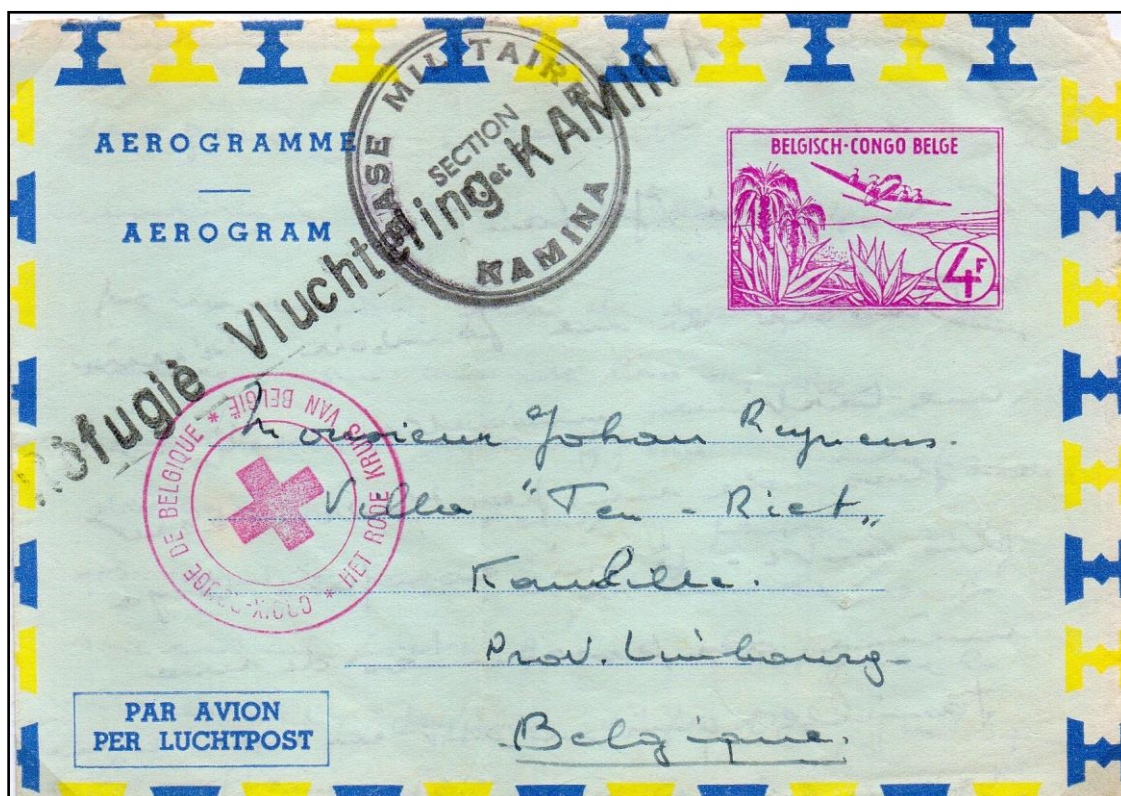 AEROGRAMME
AEROGRAM
BASE MILITAIRE
SECTION
KAMINA
Réfugié Vluchteling et KAMINA
BELGISCH-CONGO BELGE
4F
CROIX-ROUGE DE BELGIQUE * HET RODE KRUIS VAN BELGIË *
Monsieur Johan
Villa "Ten - Riet„
Prov. Limbourg
Belgique.
PAR AVION
PER LUCHTPOST